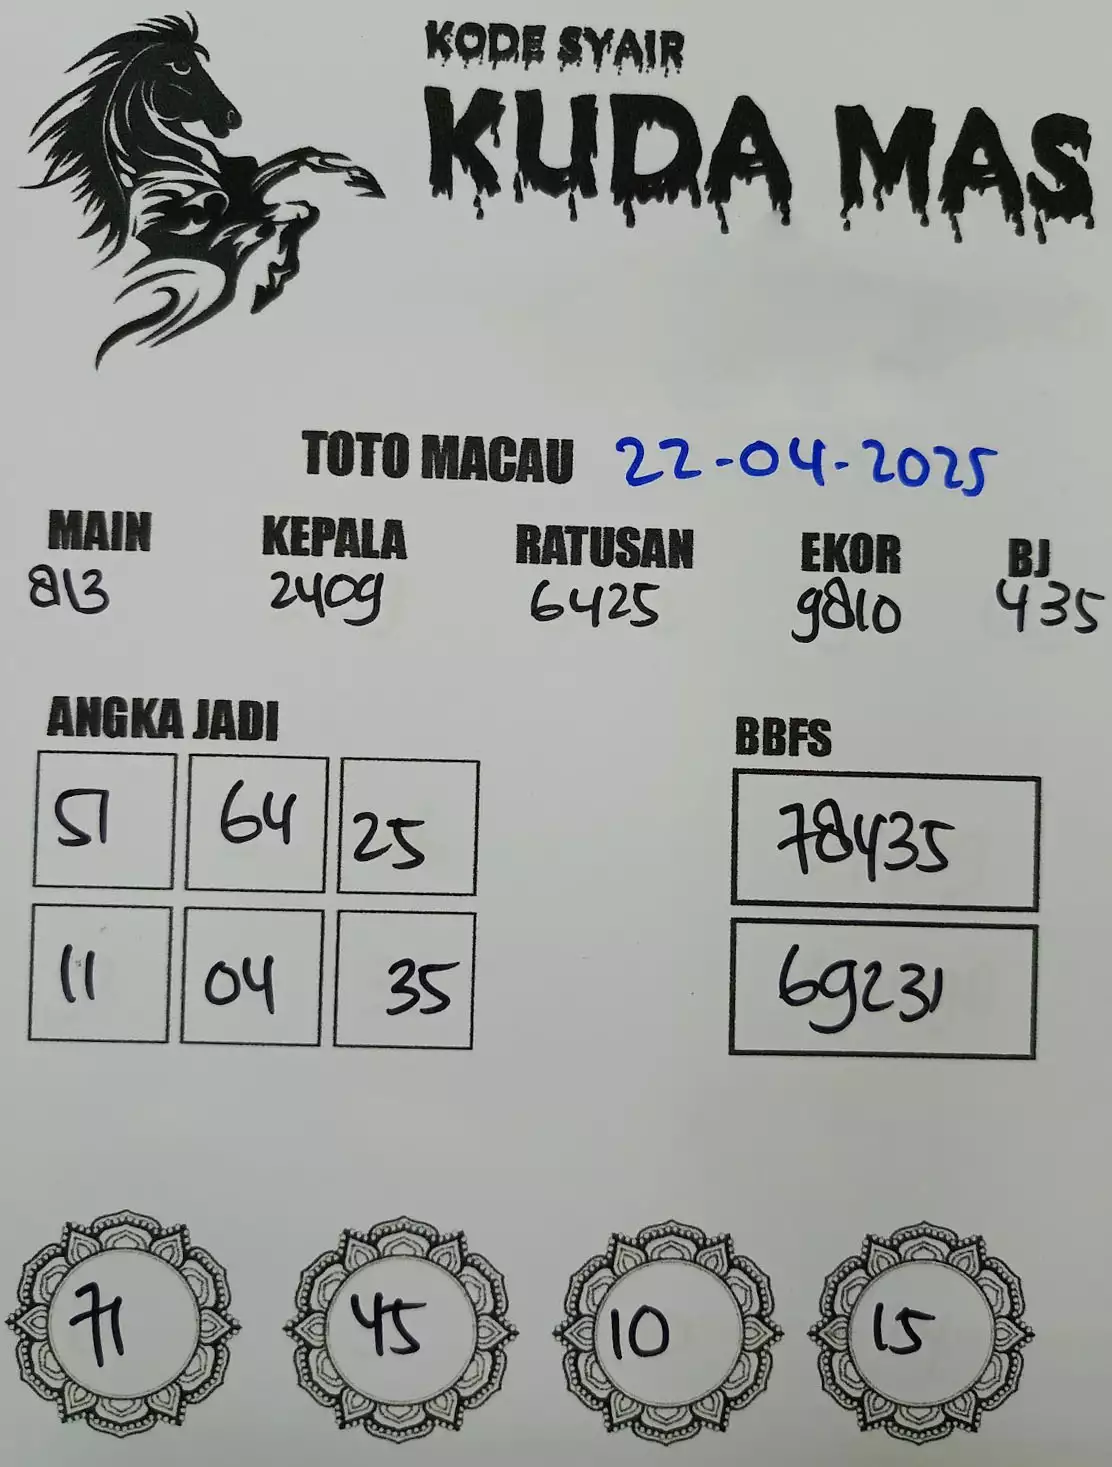 KODE SYAIR
KUDA MAS
TOTO MACAU 22-04-2025
MAIN KEPALA RATUSAN EKOR BJ
813 2409 6425 9810 435
ANGKA JADI BBFS
51 64 25 78435
11 04 35 69231
71 45 10 15